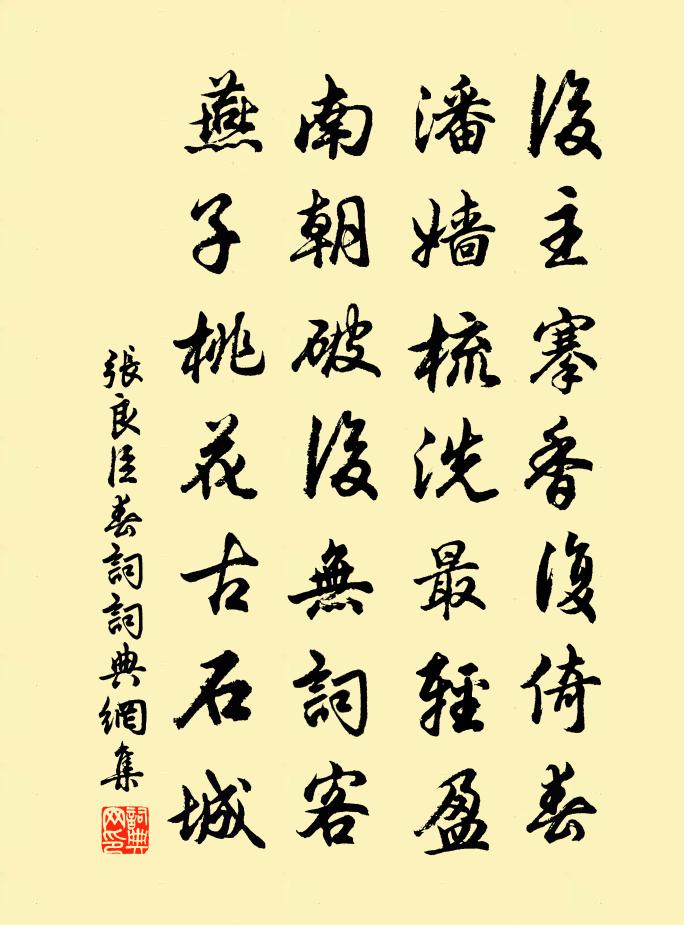 後主搴香復倚春
潘嬙梳洗最輕盈
南朝破後無詞客
燕子桃花古石城
張良臣春詞詞典網集
詞典网印